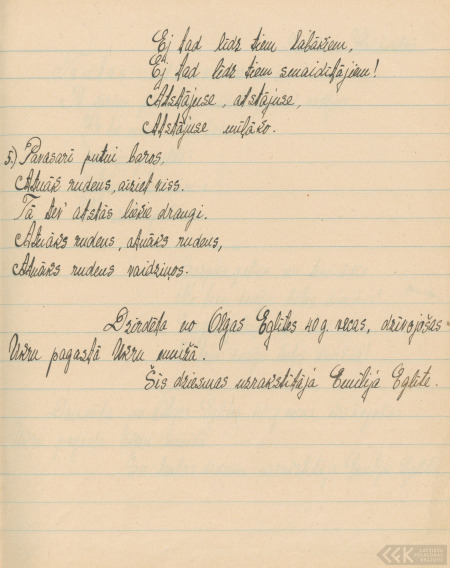 Ej tad līdz tiem labākiem,
Ej tad līdz tiem smaidītājiem!
Atstājuse, atstājuse,
Atstājuse mīļāko.
5.) Pavasarī putni baros,
Atnāk rudens, aiziet viss.
Tā tev' atstās liekie draugi.
Atnāks rudens, atnāks rudens,
Atnāks rudens vaidziņos.
Dzirdēta no Olgas Eglītes 40 g. vecas, dzīvojošas
Ukru pagastā Ukru muižā.
Šīs dziesmas uzrakstītāja Emīlija Eglīte.